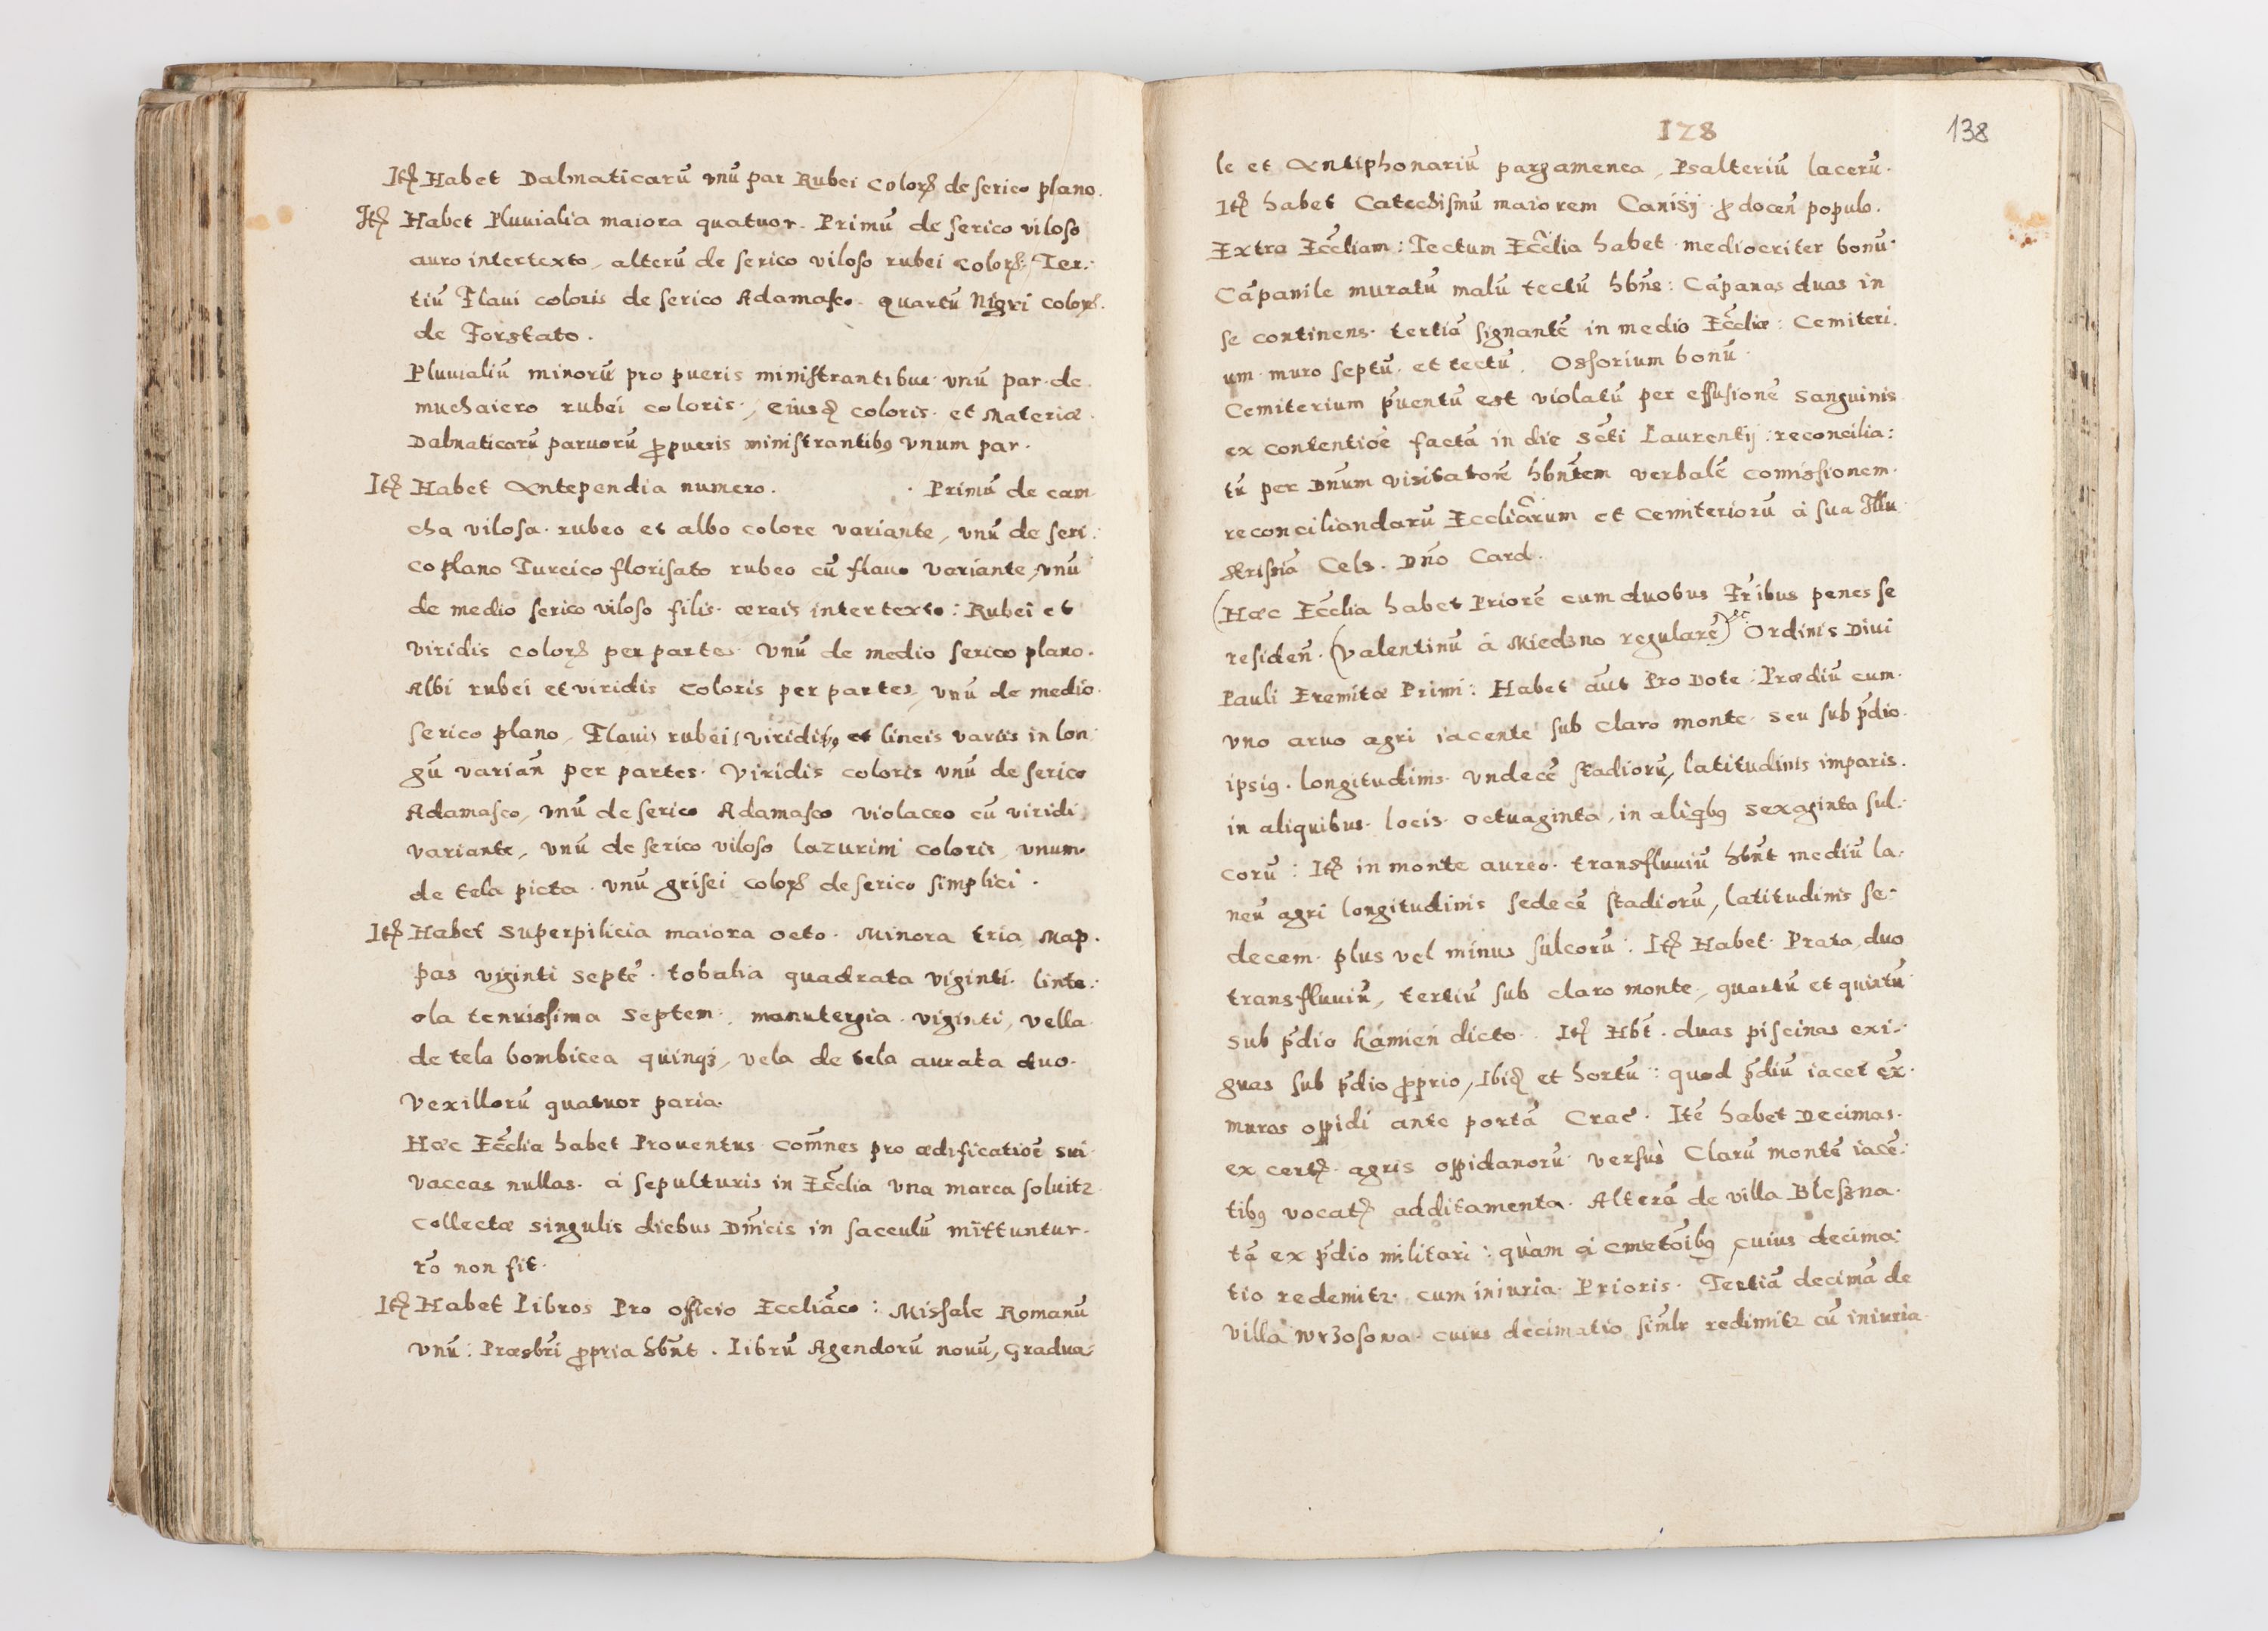 Itꝫ Habet Dalmaticarū vnū par Rubei Colorꝭ de serico plano.
Itꝫ Habet Pluuialia maiora quatuor. Primū de serico viloso
auro intertexto, alterū de serico viloso rubei colorꝭ: Ter:
tiū Flaui coloris de serico Adamasco. quartū Nigri Colorꝭ.
de Forstato.
Pluuialiū minorū pro pueris ministrantibus unū par. de
muchaiero rubei coloris, eiusdꝫ coloris. et Materiæ.
Dalmaticarū paruorū ꝓ pueris ministrantibꝰ vnum par.
Itꝫ Habet Antependia numero. . Primū de cam
cha vilosa. rubeo et albo colore variante, vnū de seri:
co plano Turcico florisato rubeo cū flauo variante, vnū
de medio serico viloso filis. æreis intertexto: Rubei et
viridis colorꝭ per partes. Vnū de medio serico plano.
Albi rubei et viridis coloris per partes, vnū de medio.
serico plano, Flaui, rubei, viridisqꝫ et lineis variis in lon:
gū varian̄ per partes. Viridis coloris vnū de serico
Adamasco, vnū de serico Adamasco violaceo cū viridi,
variante, vnū de serico viloso lazurini coloris, vnum.
de tela picta. vnū grisei colorꝭ de serico simplici.
Itꝫ Habet superpilicia maiora octo. Minora tria, Map.
pas viginti septē. tobalia quadrata viginti. linte:
ola tenuissima septem. manutergia. viginti, vella
de tela bombicea quinqꝫ, vela de tela aurata duo.
Vexillorū quatuor paria.
Hæc Eccłia habet Prouentus com̄nes pro ædificatiōe sui
vaccas nullas. à sepulturis in Eccłia vna marca soluitꝛ.
Collectæ singulis diebus Dn̄icis in sacculū mittuntur.
r̄o non fit.
Itꝫ Habet Libros Pro officio Eccliāco: Missale Romanū
vnū: Præsbr̄i ꝓpria hb̄nt. Librū Agendorū nouū, Gradua:
128
138
le et Antiphonariū pargamenea, Psalteriū lacerū.
Itꝫ habet Catechismū maiorem Canisij. ꝓ docen̄ populo.
Extra Eccłiam: Tectum Eccłia habet mediocriter bonū.
Cāpanile muratū malū tectū hb̄ns: Cāpanas duas in
se continens. tertiā signantē in medio Eccłiæ: Cemiteri.
um muro septū. et tectū. Ossorium bonū.
Cemiterium p̄uentū est violatū per effusionē sanguinis
ex contentiōe factā in die Sc̄ti Laurentij: reconcilia:
tū per Dn̄um visitatorē hb̄ntem verbalē comissionem.
reconciliandarū Eccliārum et cemiteriorū à sua Illu
strissīa Cels. Dn̄o Card.
(Hæc Eccłia habet Priorē cum duobus Fr̄ibus penes se
residen̄. (Valentinū à Miedzno regularē) Ordinis Diui
Pauli Eremitæ Primi: Habet aūt Pro Dote: Prædiū cum.
vno aruo agri iacente sub claro monte. seu sub p̄dio.
ipsiꝰ. longitudinis. vndecē stadiorū, latitudinis imparis.
in aliquibus. locis. octuaginta, in aliqbꝰ sexaginta sul:
corū: Itꝫ in monte aureo. transfluuiū hb̄nt mediū la:
neū agri longitudinis sedecē stadiorū, latitudinis se:
decem plus vel minus sulcorū: Itꝫ Habet. Prata, duo
transfluuiū, tertiū sub claro monte, quartū et quintū
sub p̄dio Kamień dicto. Itꝫ Hb̄t. duas piscinas exi:
guas sub p̄dio ꝓprio, Ibidꝫ et hortū: quod p̄diū iacet ex̄.
muros oppidi ante portā Crac̄. Itē habet Decimas.
ex certꝭ agris oppidanorū versus Clarū montē iacē:
tibꝰ vocatꝭ additamenta. Alterā de villa Bleszna.
tā ex p̄dio militari: quàm à cmetōibꝰ, cuius decima:
tio redemitꝛ cum iniuria Prioris. Tertiā decimā de
villa Wrzosowa. cuius decimatio sim̄lr redimitꝛ cū iniuria.